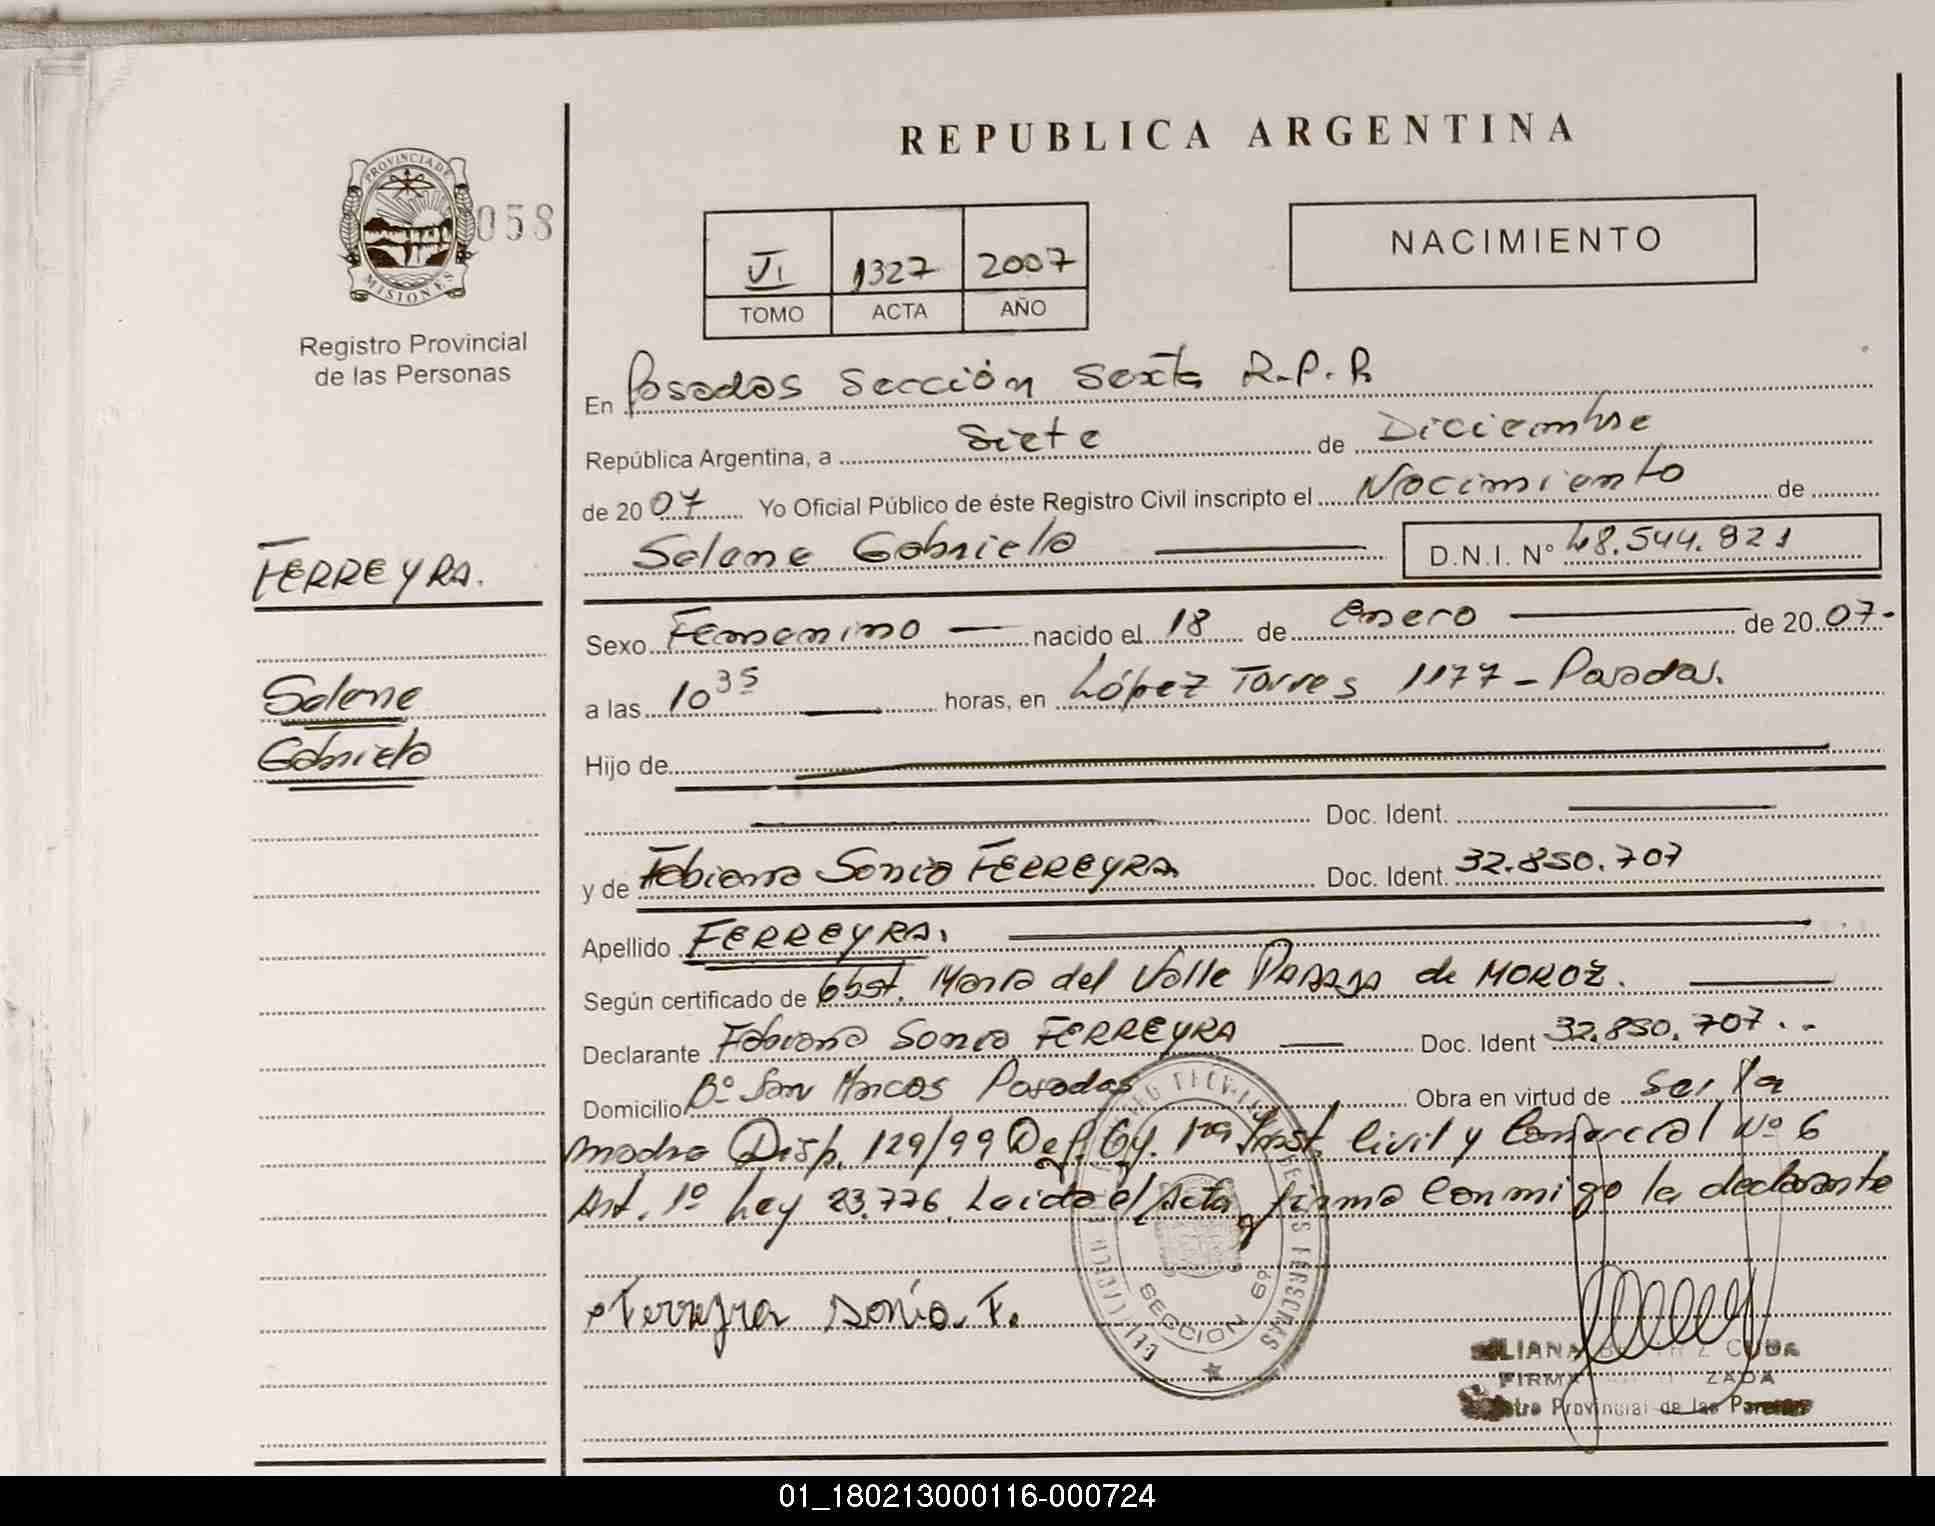 REPUBLICA ARGENTINA
PROVINCIA DE
MISIONES
058
Registro Provincial
de las Personas
VI 1327 2007
TOMO ACTA AÑO
NACIMIENTO
En Posadas Sección Sexta R.P.P.
República Argentina, a siete de Diciembre
de 2007 Yo Oficial Público de éste Registro Civil inscripto el Nacimiento de
Selene Gabriela D.N.I. N° 48.544.921
FERREYRA.
Selene
Gabriela
Sexo Femenino nacido el 18 de enero de 2007-
a las 10 35 horas, en López Torres 1177 - Posadas.
Hijo de
Doc. Ident.
y de Fabiana Sonia FERREYRA Doc. Ident. 32.850.707
Apellido FERREYRA.
Según certificado de Obst. María del Valle de MOROZ.
Declarante Fabiana Sonia FERREYRA Doc. Ident 32.850.707
Domicilio B° San Marcos Posadas Obra en virtud de ser la
madre Disp. 129/99 Def. Of. 1ra Inst. Civil y Comercial N° 6
Art. 1° Ley 23.776. Leida el Acta, firma conmigo la declarante
Ferreyra Sonia F.
SECCION 6º
CUBA
FIRMA
Provincial de las Personas
01_180213000116-000724